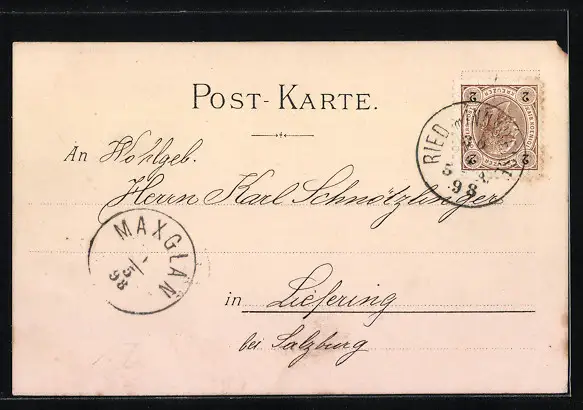 POST-KARTE.
An Wohlgeb.
Herrn Karl Schnötzlinger
in Liefering
bei Salzburg
RIED
98
MAXGLAN
5/1
98
2 2
2 2